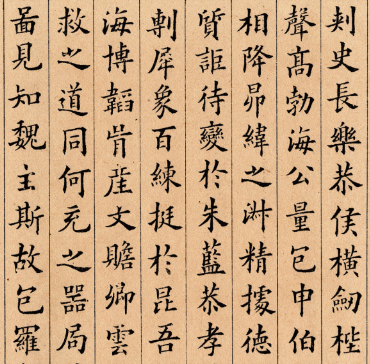 刾史長樂恭侯橫劒桎
聲髙勃海公量包申伯
相降昴緯之淑精據德
質詎待變於朱藍恭孝
剸犀象百練挺於昆吾
海博韜文贍卿雲
救之道同何充之器局
啚見知魏主斯故包羅